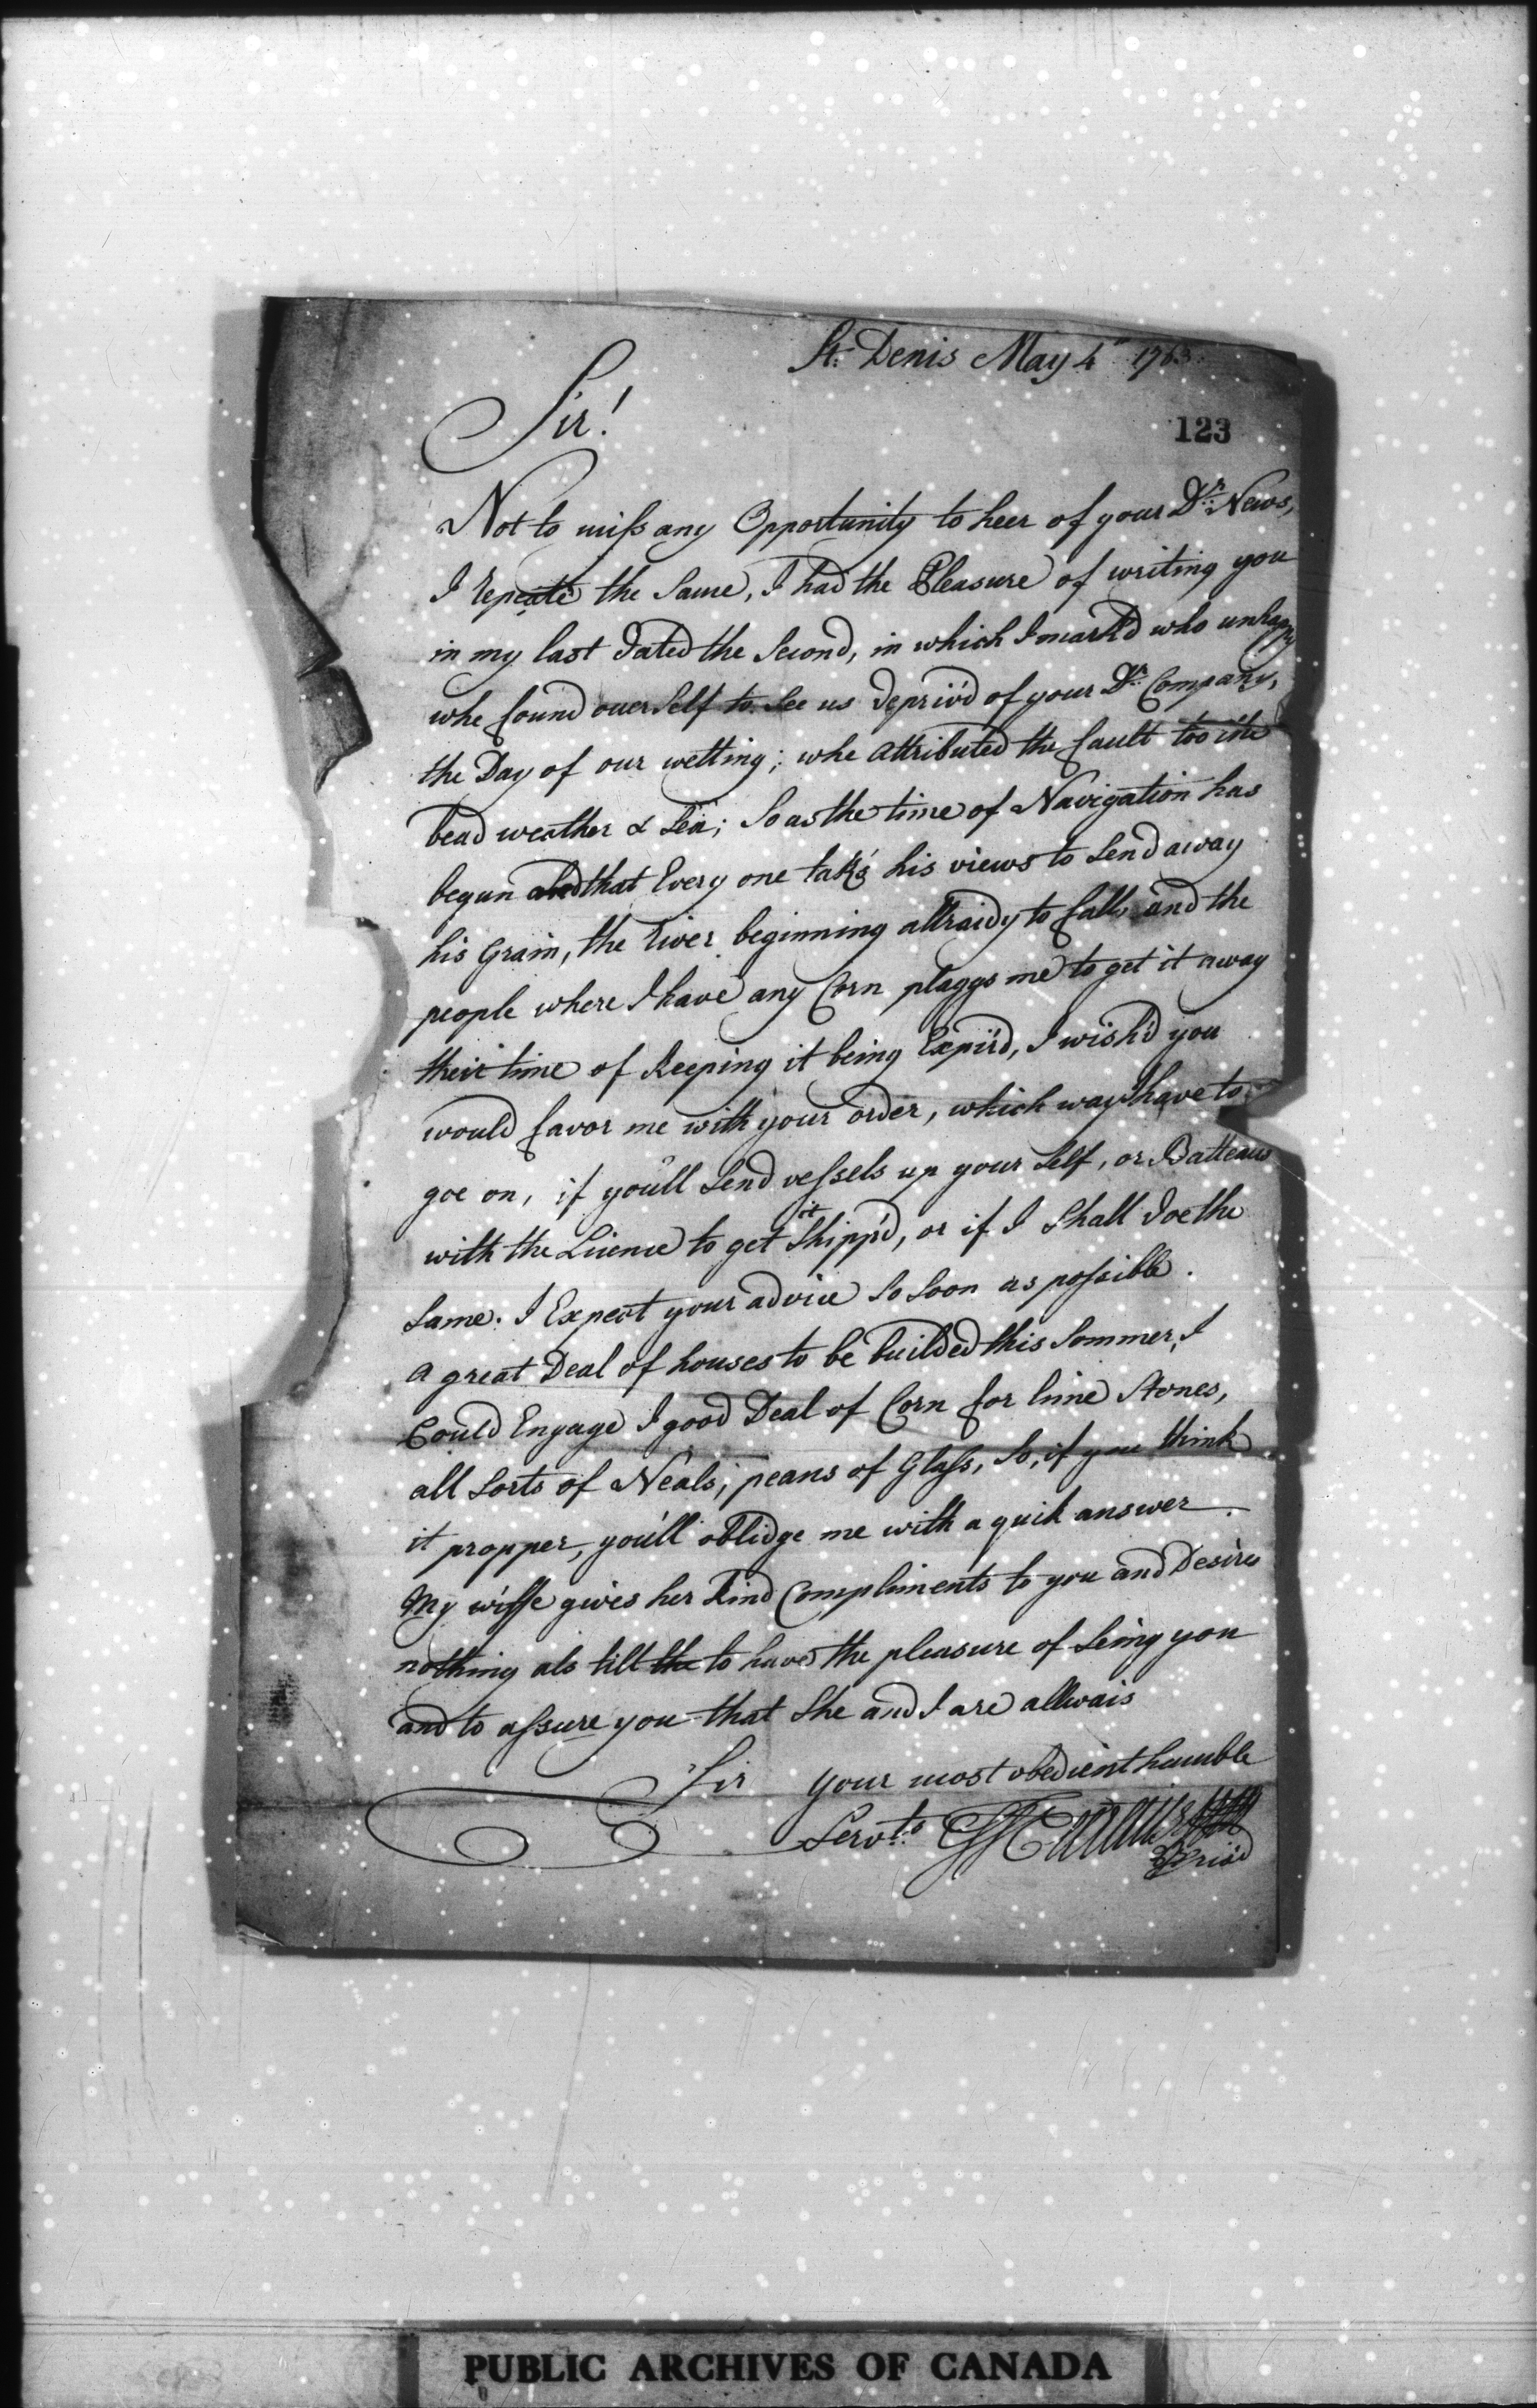 St: Denis May 4th 1763.
Sir!
123
Not to miss any Opportunity to heer of your Dr: News,
I repeate the Same, I had the Pleasure of writing you
in my last Dated the Second, in which I mark'd who unhappy
whe found ouerSelf to See us depriv'd of your Dr: Company,
the Day of our wetting; whe attributed the fault too the
bead weather & Sea; So as the time of Navigation has
begun and that Every one tak's his views to Send away
his Grain, the River beginning allraidy to fall, and the
people where I have any Corn plaggs me to get it away
their time of Keeping it being Expir'd, I wish'd you
would favor me with your order, which way I have to
goe on, if you'll Send vessels up your Self, or Batteaus
with the Licence to get it Shipp'd, or if I Shall Doe the
Same. I Expect your advice So Soon as possible.
A great Deal of houses to be builded this Sommer, I
Could Engage I good Deal of Corn for lime Stones,
all Sorts of Neals, peans of Glass, So, if you think
it propper, you'll oblidge me with a quik answer.
My wiffe gives her Kind Compliments to you and Desires
nothing als till the to have the pleasure of Seing you
and to assure you that She and I are allwais
Sir your most obedient humble
Servts: